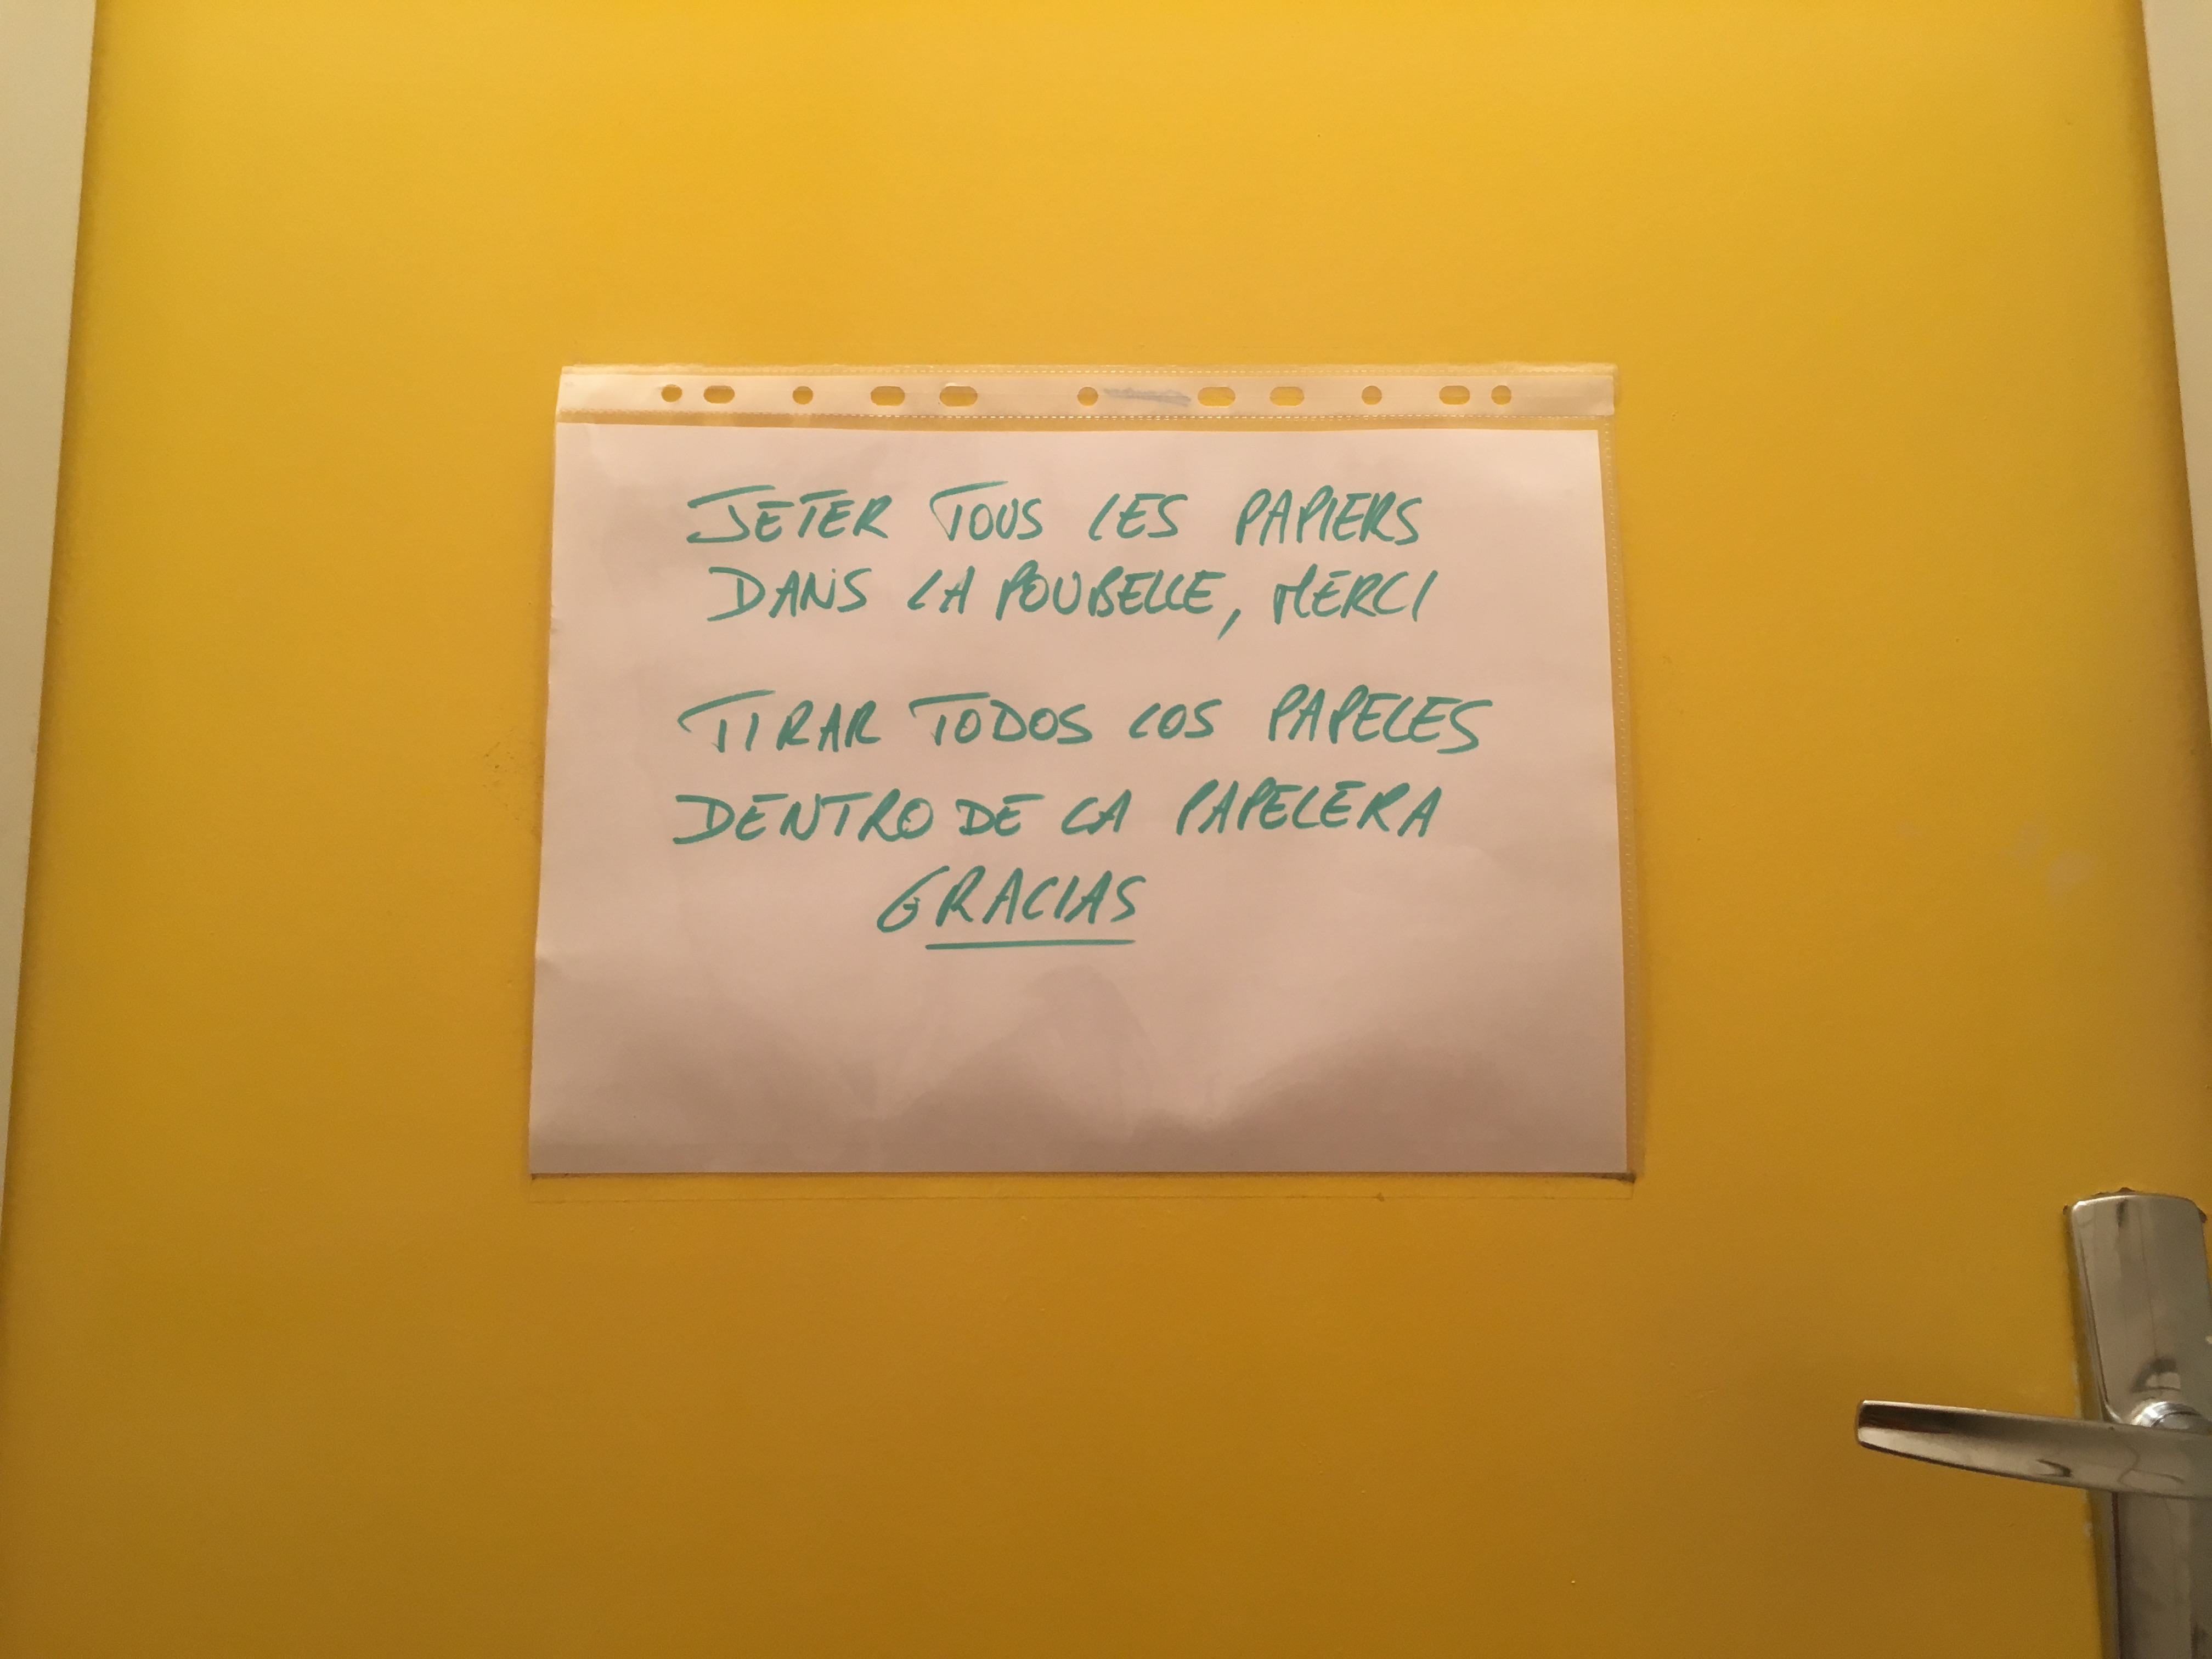 JETER TOUS LES PAPIERS
DANS LA POUBELLE, MERCI
TIRAR TODOS LOS PAPELES
DENTRO DE LA PAPELERA
GRACIAS